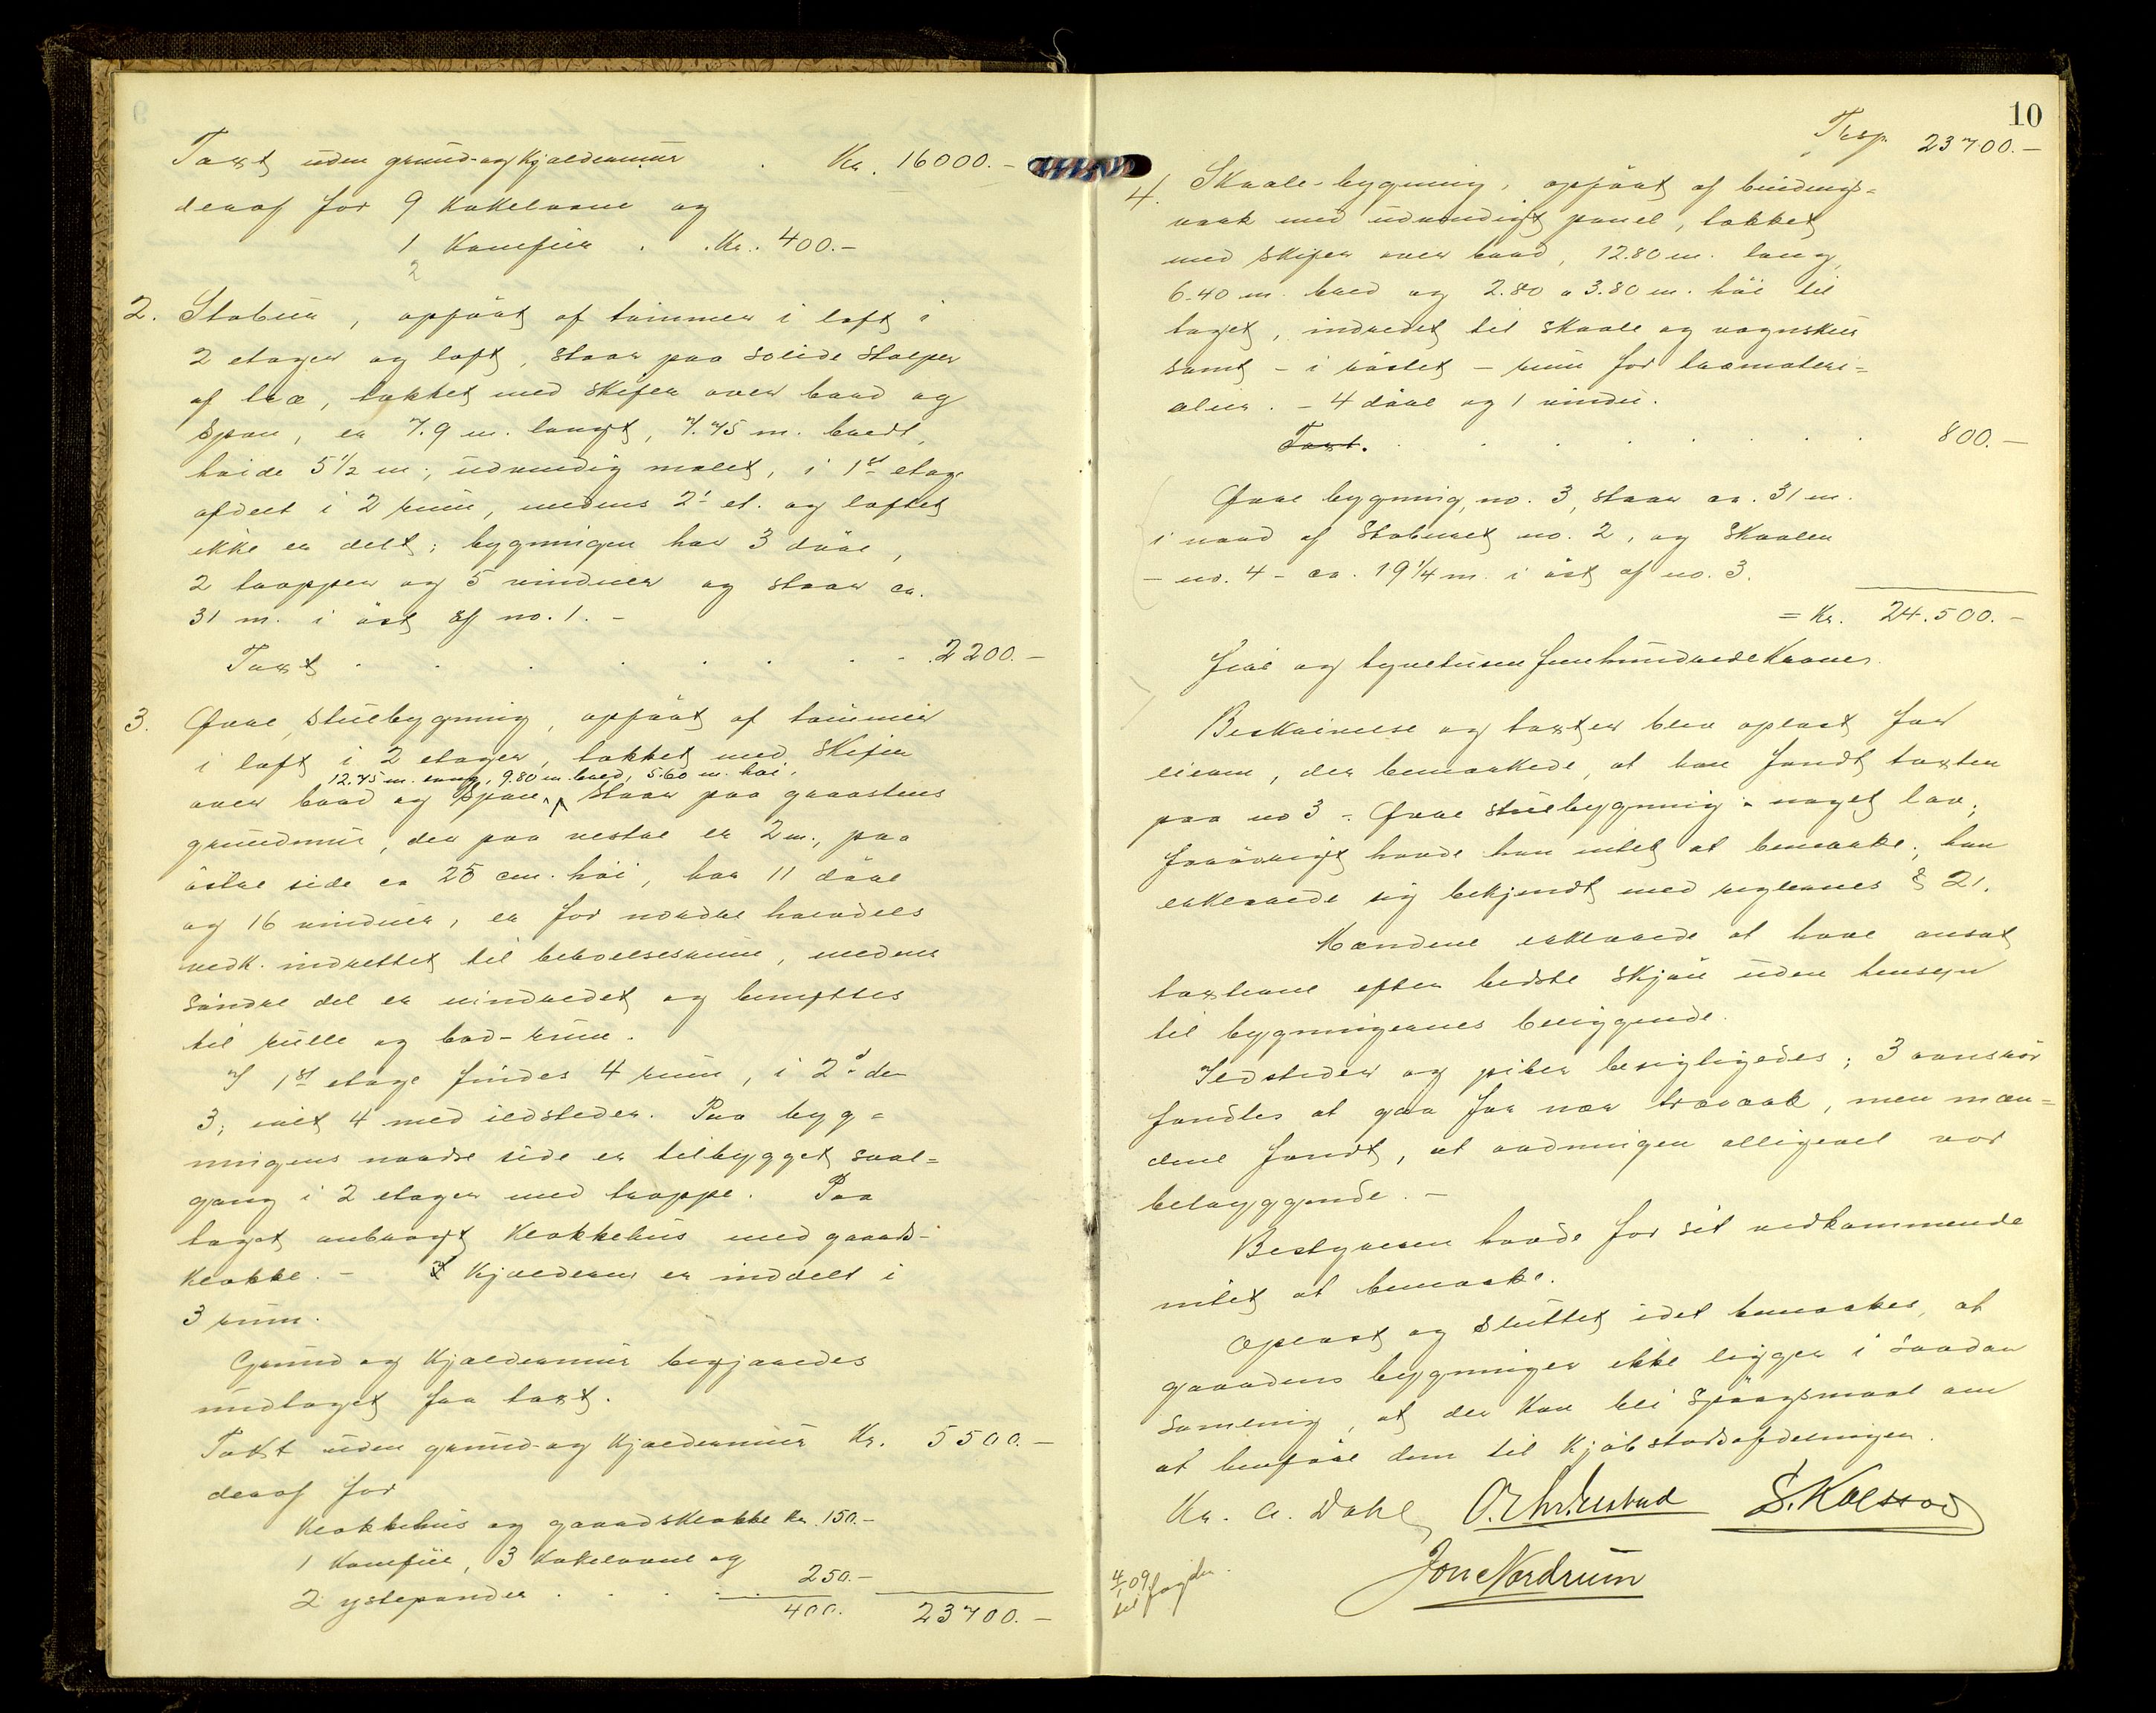 Taxt uden grund- og kjældermur . Kr. 16000.-
deraf for 9 kakelovne og
1 Komfur . . Kr. 400.-
2
2. Stabur, opført af tømmer i loft i
2 etager og loft, staar paa solide stolper
af træ, tækket med skifer over bord og
spon, er 7.9 m. langt, 7.75 m. bredt,
høide 5 1/2 m., udvendig malet, i 1ste etage
afdelt i 2 rum, medens 2. et. og loftet
ikke er delt; bygningen har 3 døre,
2 trapper og 5 vinduer og staar ca.
31 m. i øst af no. 1. -
Taxt . . . . . . . . 2200.-
3. Øvre stuebygning, opført af tømmer
i loft i 2 etager, tækket med skifer
12.75 m. lang, 9.80 m. bred, 5.60 m. høi,
over bord og spon, staar paa graastens
grundmur, der paa vestre er 2 m., paa
østre side ca 25 cm. høi, har 11 døre
og 16 vinduer, er for nordre halvdels
vedk. indrettet til beboelsesrum, medens
søndre del er uindredet og benyttes
til rulle og bod-rum.
I 1ste etage findes 4 rum, i 2den
3; ialt 4 med ildsteder. Paa byg=
ningens nordre side er tilbygget sval=
gang i 2 etager med trappe. Paa
taget anbragt klokkehus med gaards-
klokke. - Kjælderen er inddelt i
3 rum.
Grund og Kjældermur begjæredes
undtaget fra taxt.
Takst uden grund- og kjældermur Kr. 5500.-
deraf for
Klokkehus og gaardsklokke Kr. 150.-
1 Komfur, 3 kakelovne og
2 ystepander . . . . . 250.-
400. 23700.-
10
Trsp. 23700.-
4. Skaale-bygning, opført af bindings=
verk med udvendigt panel, tækket
med skifer over bord, 12.80 m. lang,
6.40 m. bred og 2.80 a 3.80 m. høi til
taget, indredet til skaale og vognskur
samt - i røstet - rum for træmateri=
aler. - 4 døre og 1 vindu.
Taxt. . . . . . . . 800.-
Øvre bygning, no. 3, staar ca. 31 m.
i nord af Staburet no. 2, og Skaalen
- no. 4 - ca. 19 1/4 m. i øst af no. 3.
= Kr. 24.500.-
Fire og tyvetusen femhundrede Kroner.
Beskrivelse og taxter blev oplæst for
eieren, der bemærkede, at han fandt taxten
paa no 3 - Øvre stuebygning - noget lav;
forøvrigt havde han intet at bemærke; han
erklærede sig bekjendt med reglernes § 21.
Mændene erklærede at have ansat
taxterne efter bedste skjøn uden hensyn
til bygningernes beliggende.
Ildsteder og piber besigtigedes; 3 ovnsrør
fandtes at gaa for nær træverk, men mæn=
dene fandt, at ordningen alligevel var
betryggende. -
Bestyreren havde for sit vedkommende
intet at bemærke.
Oplæst og sluttet idet bemærkes, at
gaardens bygninger ikke ligger i saadan
samling, at der kan bli spørgsmaal om
at henføre dem til kjøbstadsafdelingen.
Kr. A. Dahl S. Kolsrod
Jon Nordrum
4/1 09
til fogden.